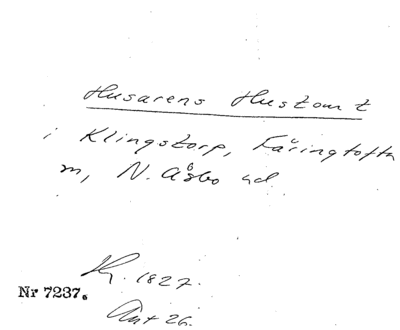 Husarens Hustomt
i Klingstorp, Färingtofta
sn, N. Åsbo hd
1827.
Nr 7237.
Akt 26.